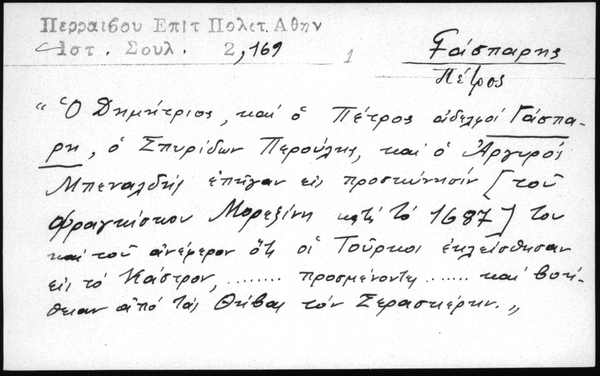 Περραιβου Επιτ Πολιτ. Αθην
Ιστ. Σουλ. 2,169
1
Γάσπαρης
Πέτρος
"Ὁ Δημήτριος, καί ὁ Πέτρος ἀδελφοί Γάσπα-
ρη, ὁ Σπυρίδων Περούλης, καί ὁ Ἀργυρός
Μπεναλδής ἐπῆγαν εἰς προσκύνησίν [τοῦ
Φραγκίσκου Μορεζίνη κατά τό 1687] του
καί τοῦ ἀνέφερον ὅτι οἱ Τοῦρκοι ἐκλείσθησαν
εἰς τό Κάστρον, ........ προσμένοντες ...... καί βοή-
θειαν ἀπό τάς Θήβας τόν Σερασκέρην."